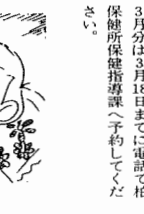 3月分は3月18日までに電話で柏
保健所保健指導課へ予約してくだ
さい。